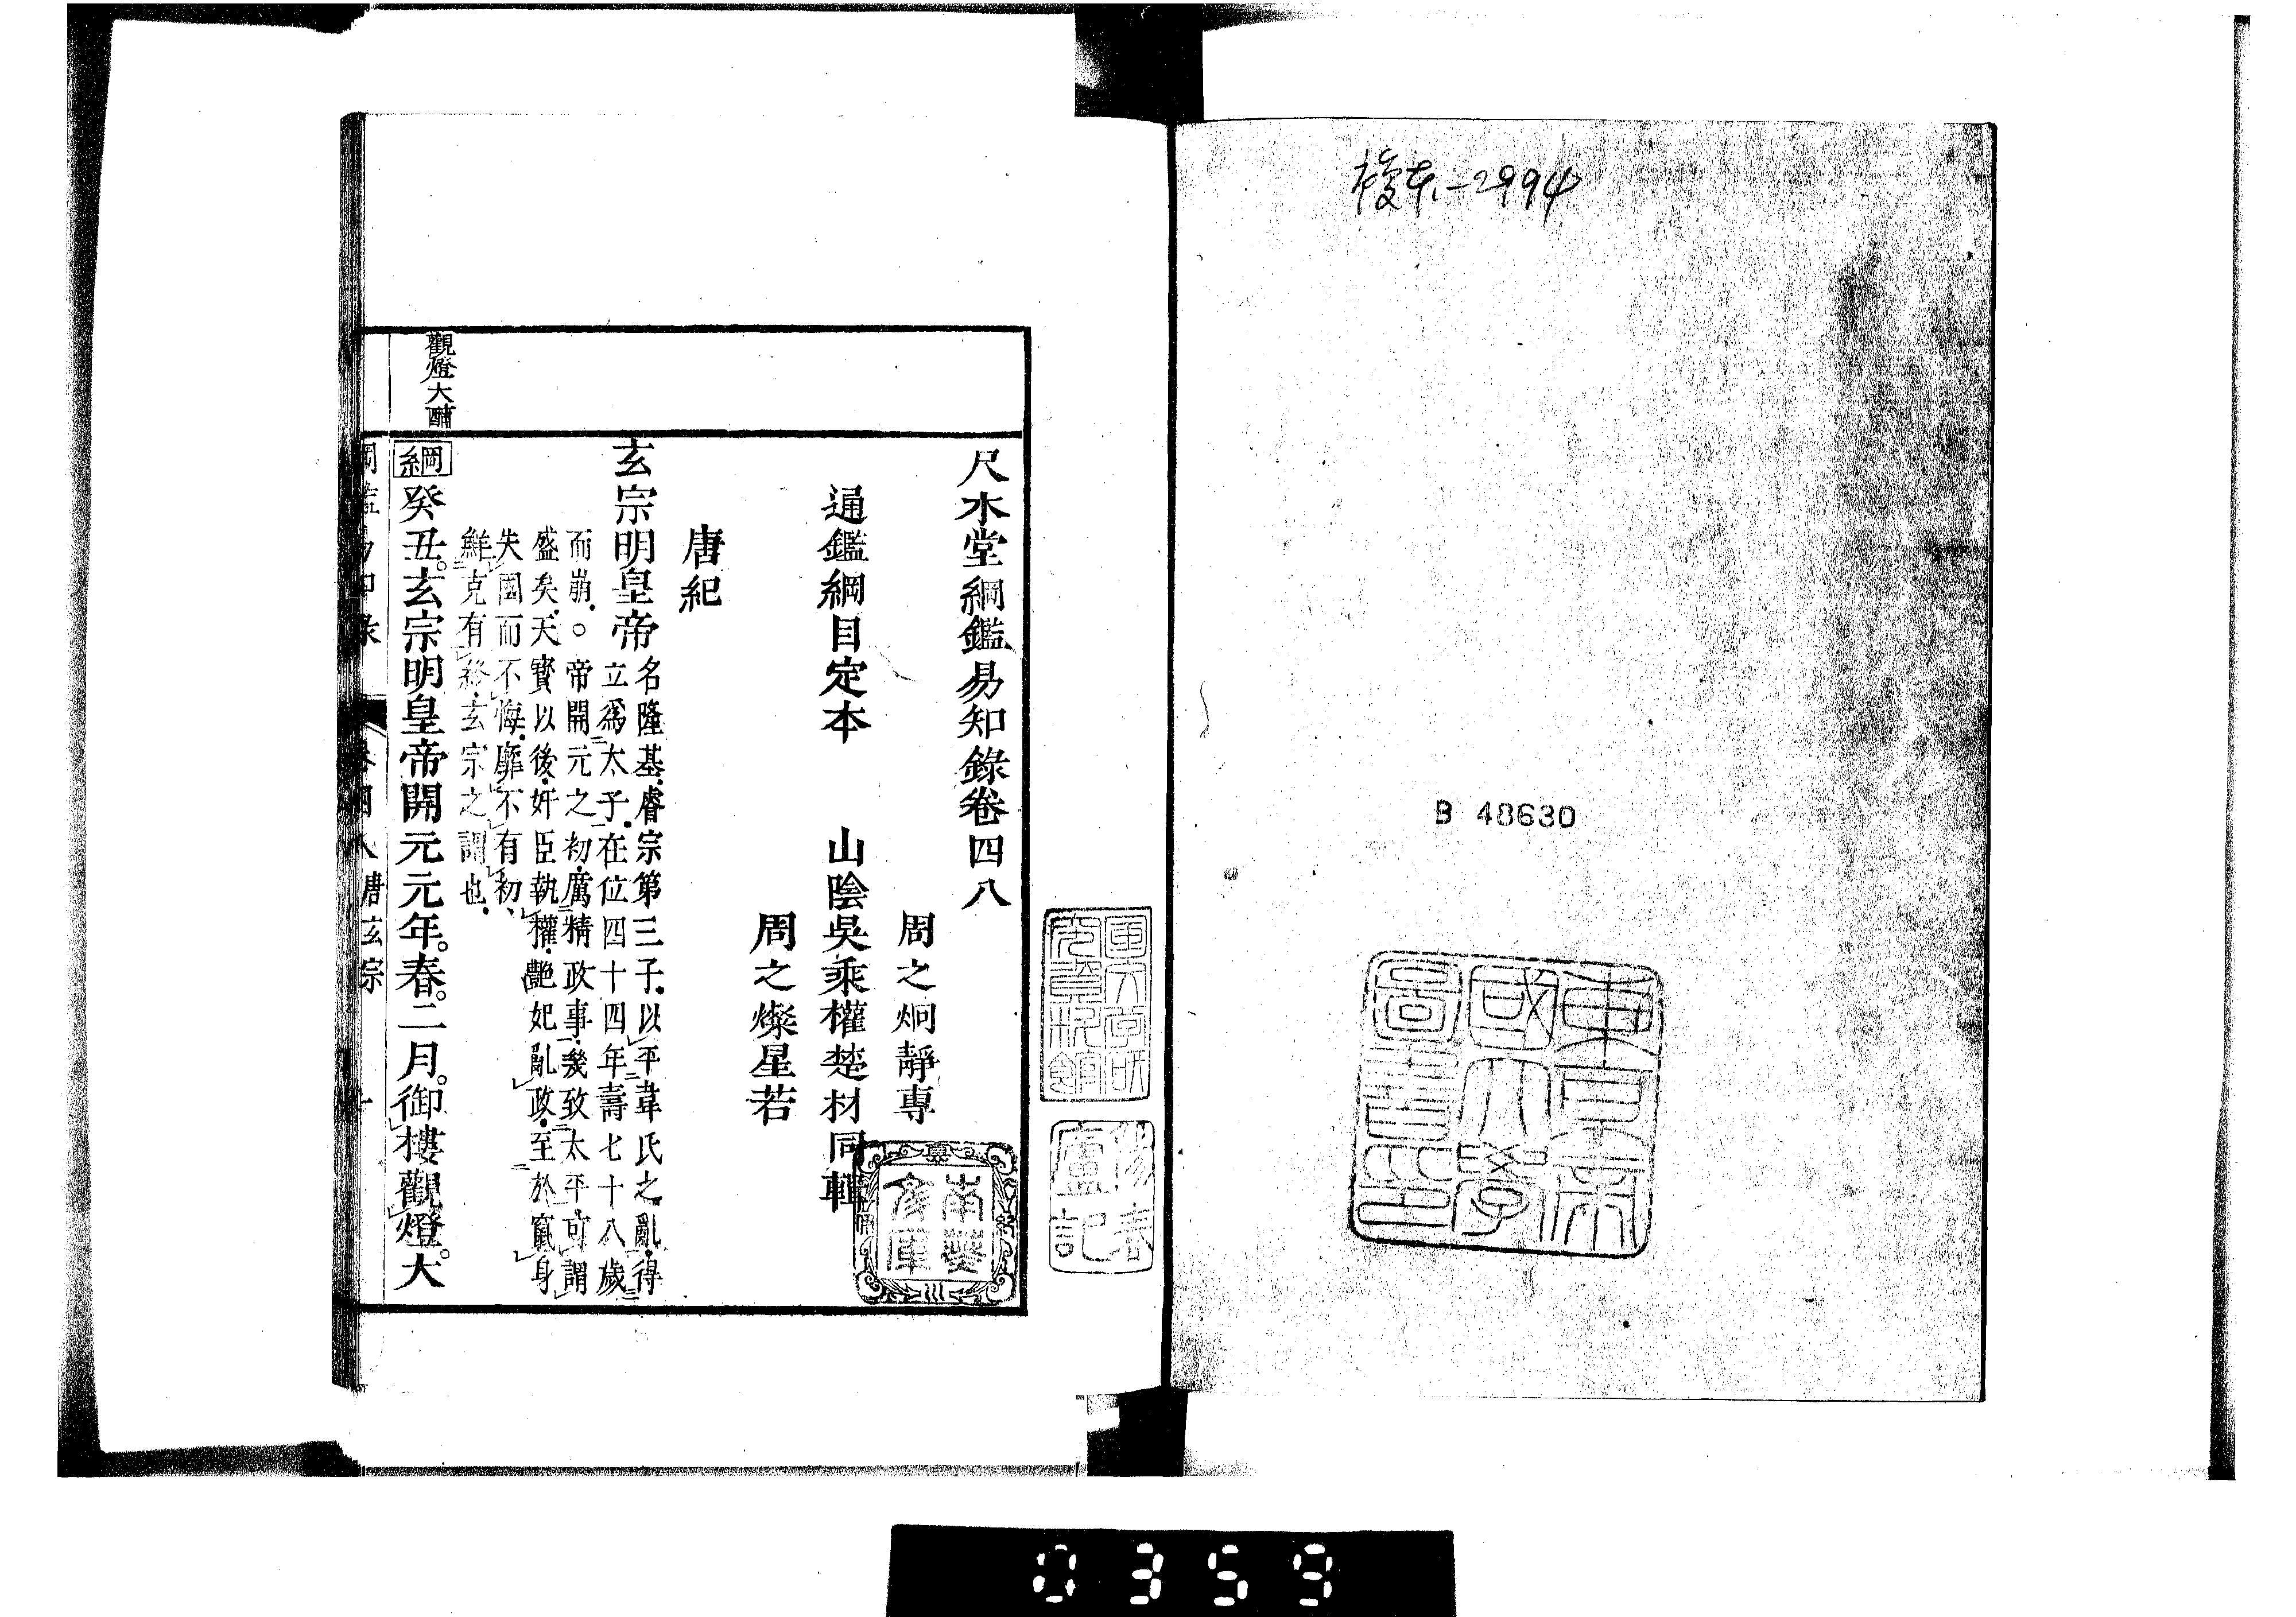 複本-2994
B 48630
東京帝
國大學
圖書印
陽春
廬記
南葵
文庫
尺木堂綱鑑易知錄卷四八
周之炯靜專
通鑑綱目定本 山陰吳乘權楚材同輯
周之燦星若
唐紀
玄宗明皇帝 名隆基睿宗第三子以平韋氏之亂得
立爲太子在位四十四年壽七十八歲
而崩○帝開元之初厲精政事幾致太平可謂
盛矣天寶以後奸臣執權艷妃亂政至於竄身
失國而不悔靡不有初
鮮克有終玄宗之謂也
觀燈大酺
綱癸丑。玄宗明皇帝開元元年。春。二月。御樓觀燈。大
唐玄宗
0359